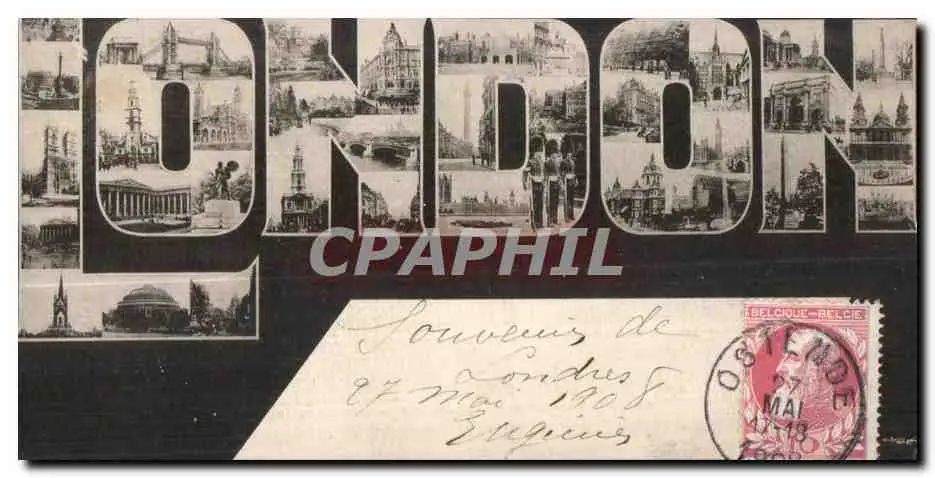 LONDON
CPAPHIL
Souvenir de
Londres
27 mai 1908
Eugénie
BELGIQUE-BELGIË
OSTENDE
27
MAI
17-18
1908